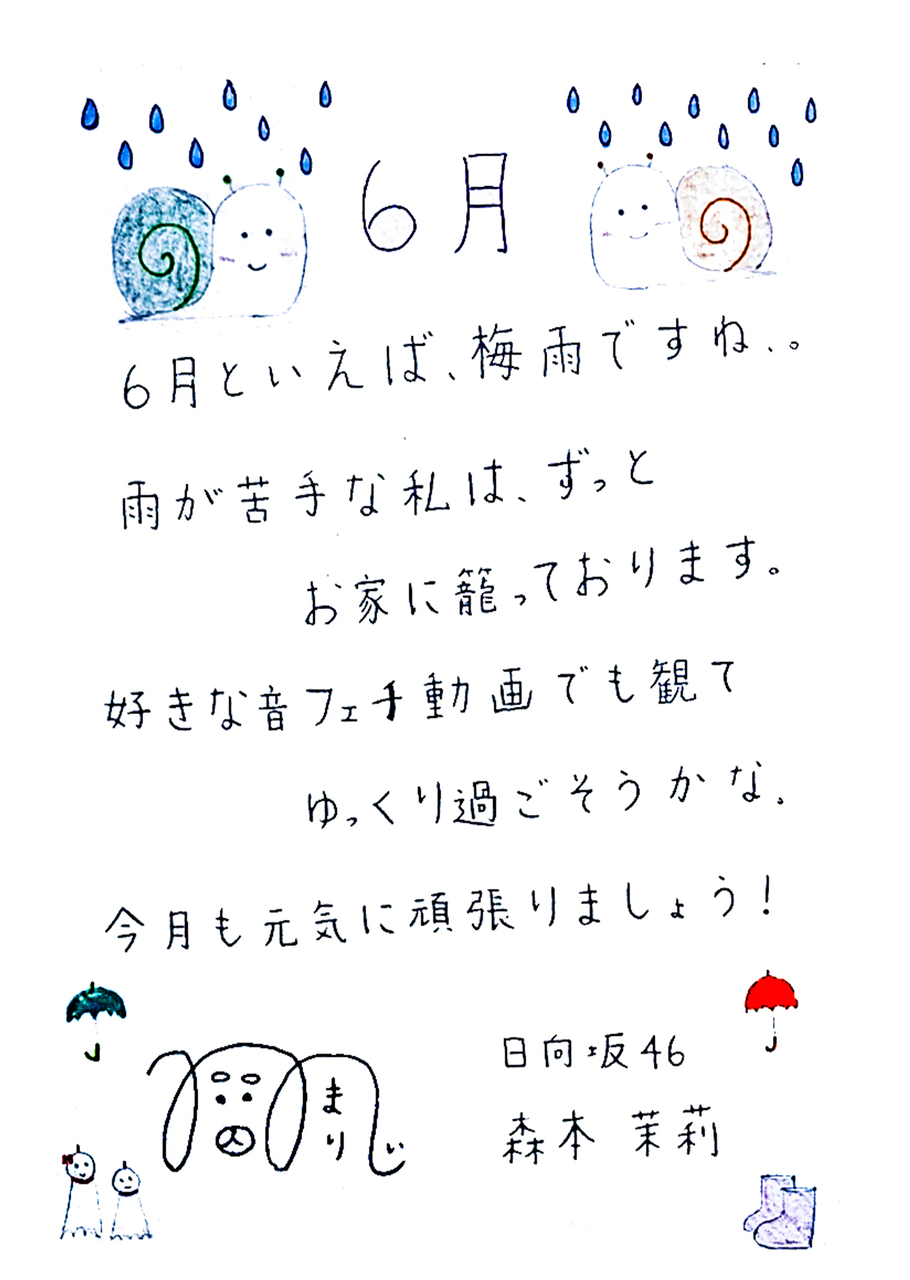 6月
6月といえば、梅雨ですね、。
雨が苦手な私は、ずっと
お家に籠っております。
好きな音フェチ動画でも観て
ゆっくり過ごそうかな。
今月も元気に頑張りましょう!
日向坂46
まりぃ
森本 茉莉